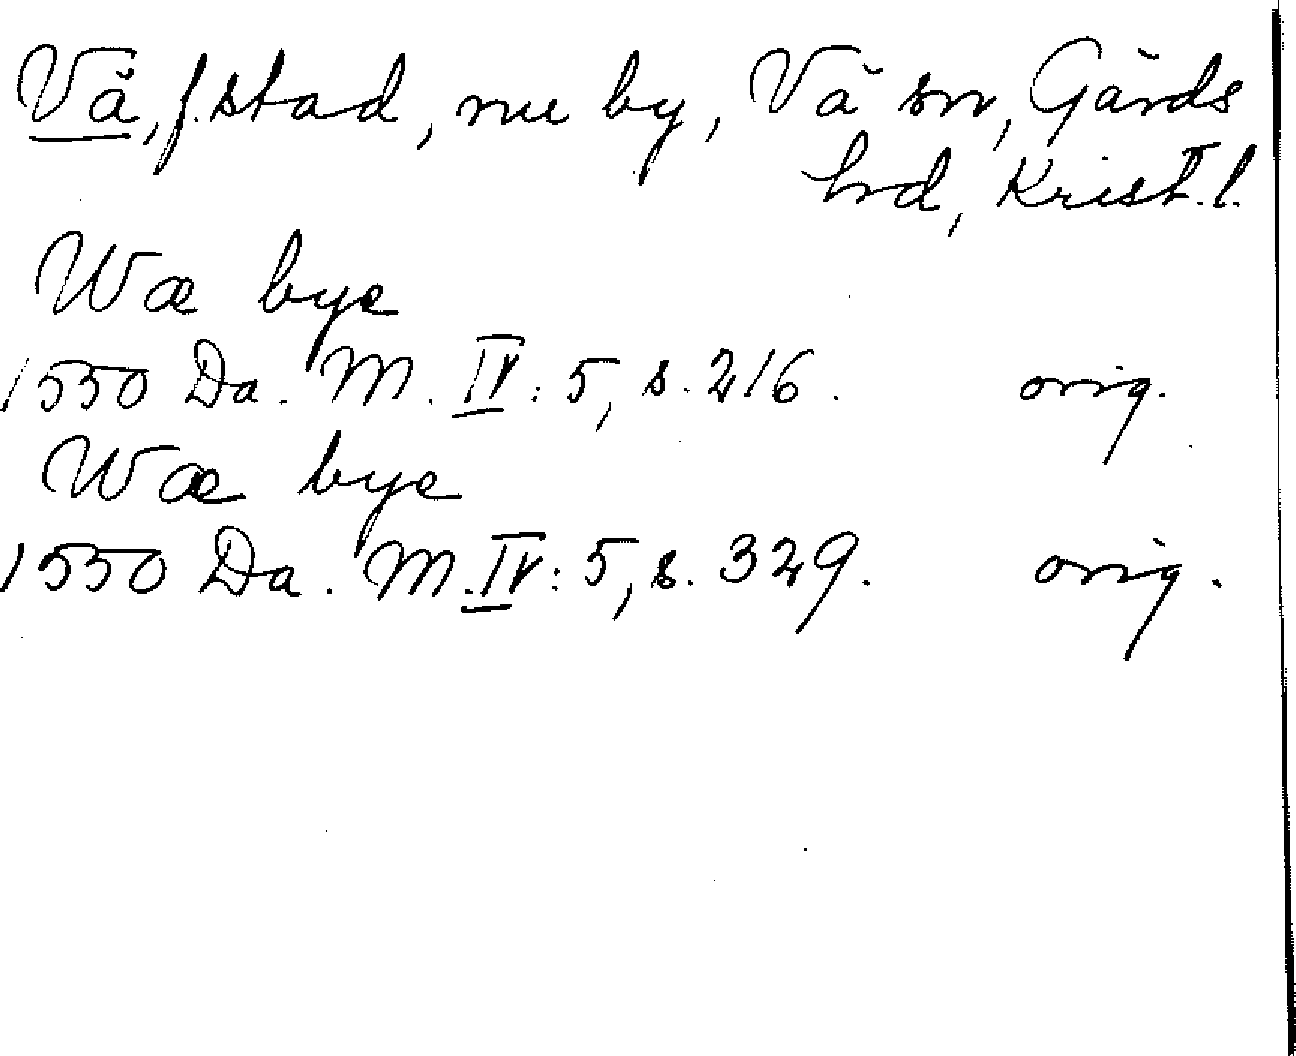 Vä, f. stad, nu by, Vä sn, Gärds
hrd, Krist. l.
Wæ bye
1550 Da. M. IV: 5, s. 216. orig.
Wæ bye
1550 Da. M. IV: 5, s. 329. orig.